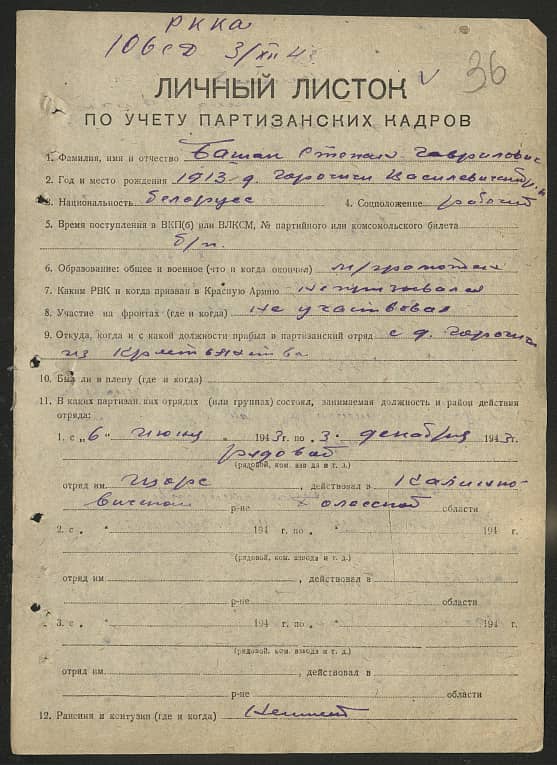 РККА
106 сд 3/XII 43
V 36
ЛИЧНЫЙ ЛИСТОК
ПО УЧЕТУ ПАРТИЗАНСКИХ КАДРОВ
1. Фамилия, имя и отчество Башан Степан Гаврилович
2. Год и место рождения 1913 г д.
3. Национальность белорусс 4. Соцположение рабочий
5. Время поступления в ВКП(б) или ВЛКСМ, № партийного или комсомольского билета
б/п.
6. Образование: общее и военное (что и когда окончил) м/грамотный
7. Каким РВК и когда призван в Красную Армию Не призывался
8. Участие на фронтах (где и когда) Не участвовал
9. Откуда, когда и с какой должности прибыл в партизанский отряд с д.
из
10. Был ли в плену (где и когда)
11. В каких партизан ких отрядах (или группах) состоял, занимаемая должность и район действия
отряда:
1. с „6" июня 1943 г. по „3" декабря 1943 г.
рядовой
(рядовой, ком. взв да и т. з.)
отряд им Щорс , действовал в Калинко-
вичском р-не Полесской области
2. с „ " 194 г. по „ " 194 г.
(рядовой, ком. взвода и т. д.)
отряд им , действовал в
р-не области
3. с „ " 194 г. по „ " 194 г.
(рядовой, ком. взвода и т. д.)
отряд им , действовал в
р-не области
12. Ранения и контузии (где и когда) Не имеет